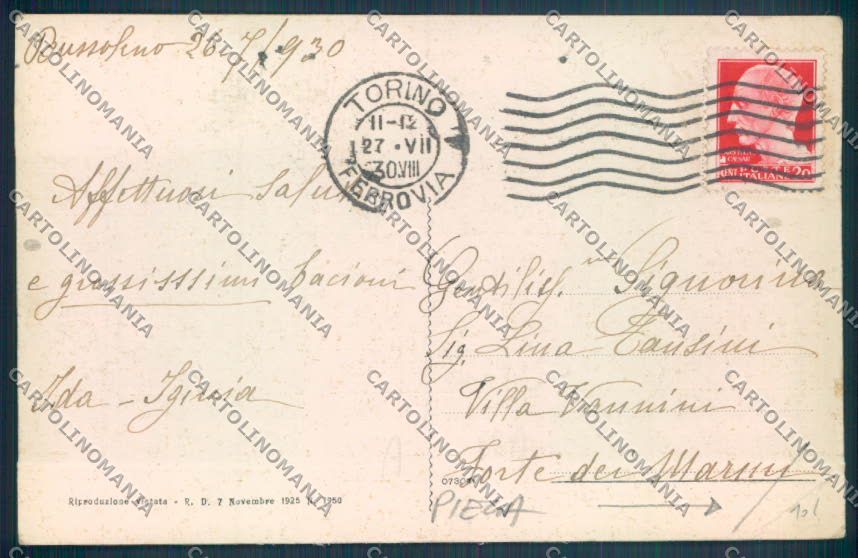 Bussoleno 26/7/930
TORINO
11-12
27 · VII
30.VIII
FERROVIA
CAESAR
POSTE ITALIANE 20
Affettuosi Saluti
e grossisssimi bacioni
Ida -
Gentilis. Signorina
Sig. Lina
Villa Vannini
Forte dei Marmi
Riproduzione vietata - R. D. 7 Novembre 1925 N. 1950
PIEGA
CARTOLINOMANIA